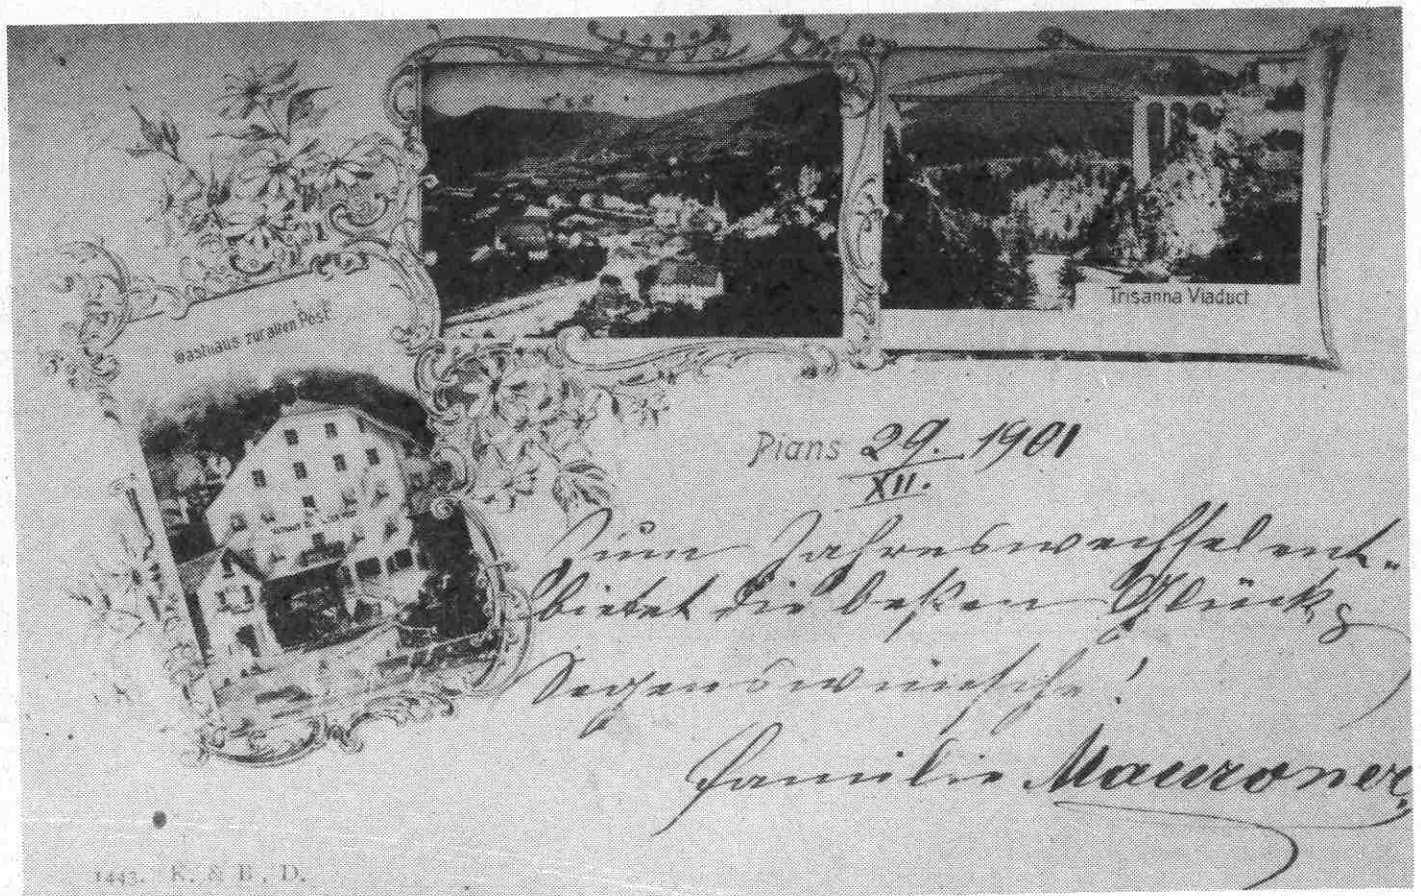 Gasthaus zur alten Post
Trisanna Viaduct
Pians 29. 1901
XII.
Zum Jahreswechsel ent-
bietet die besten Glücks
Segenswünsche!
Familie Mauroner
1443. K. & B., D.